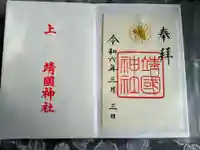 奉拝
靖國神社
令和六年三月三日
上
靖國神社